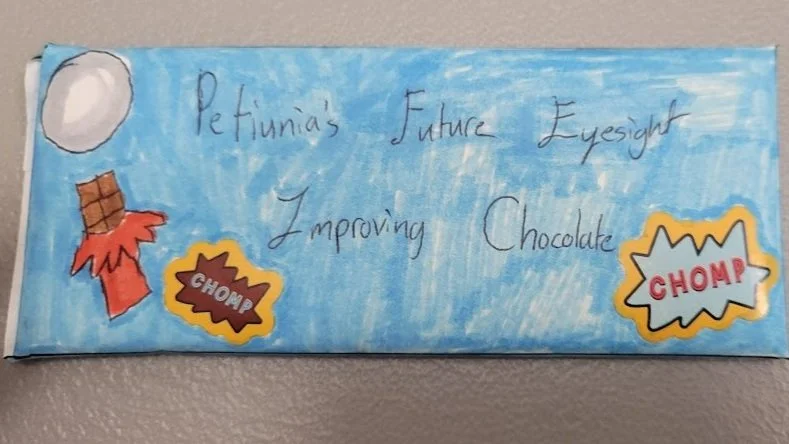 Petiunia's Future Eyesight
Improving Chocolate
CHOMP
CHOMP